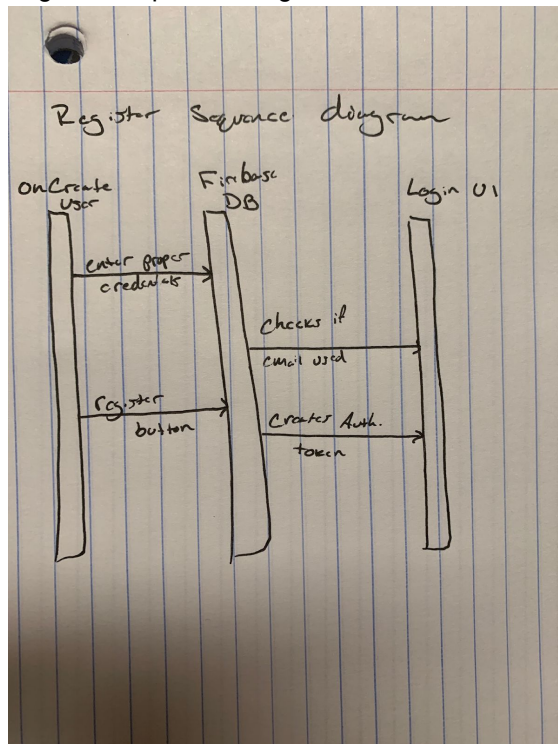 Register Sequence diagram
onCreate
User
Firebase
DB
Login UI
enter proper
credentials
Checks if
email used
register
button
Creates Auth.
token